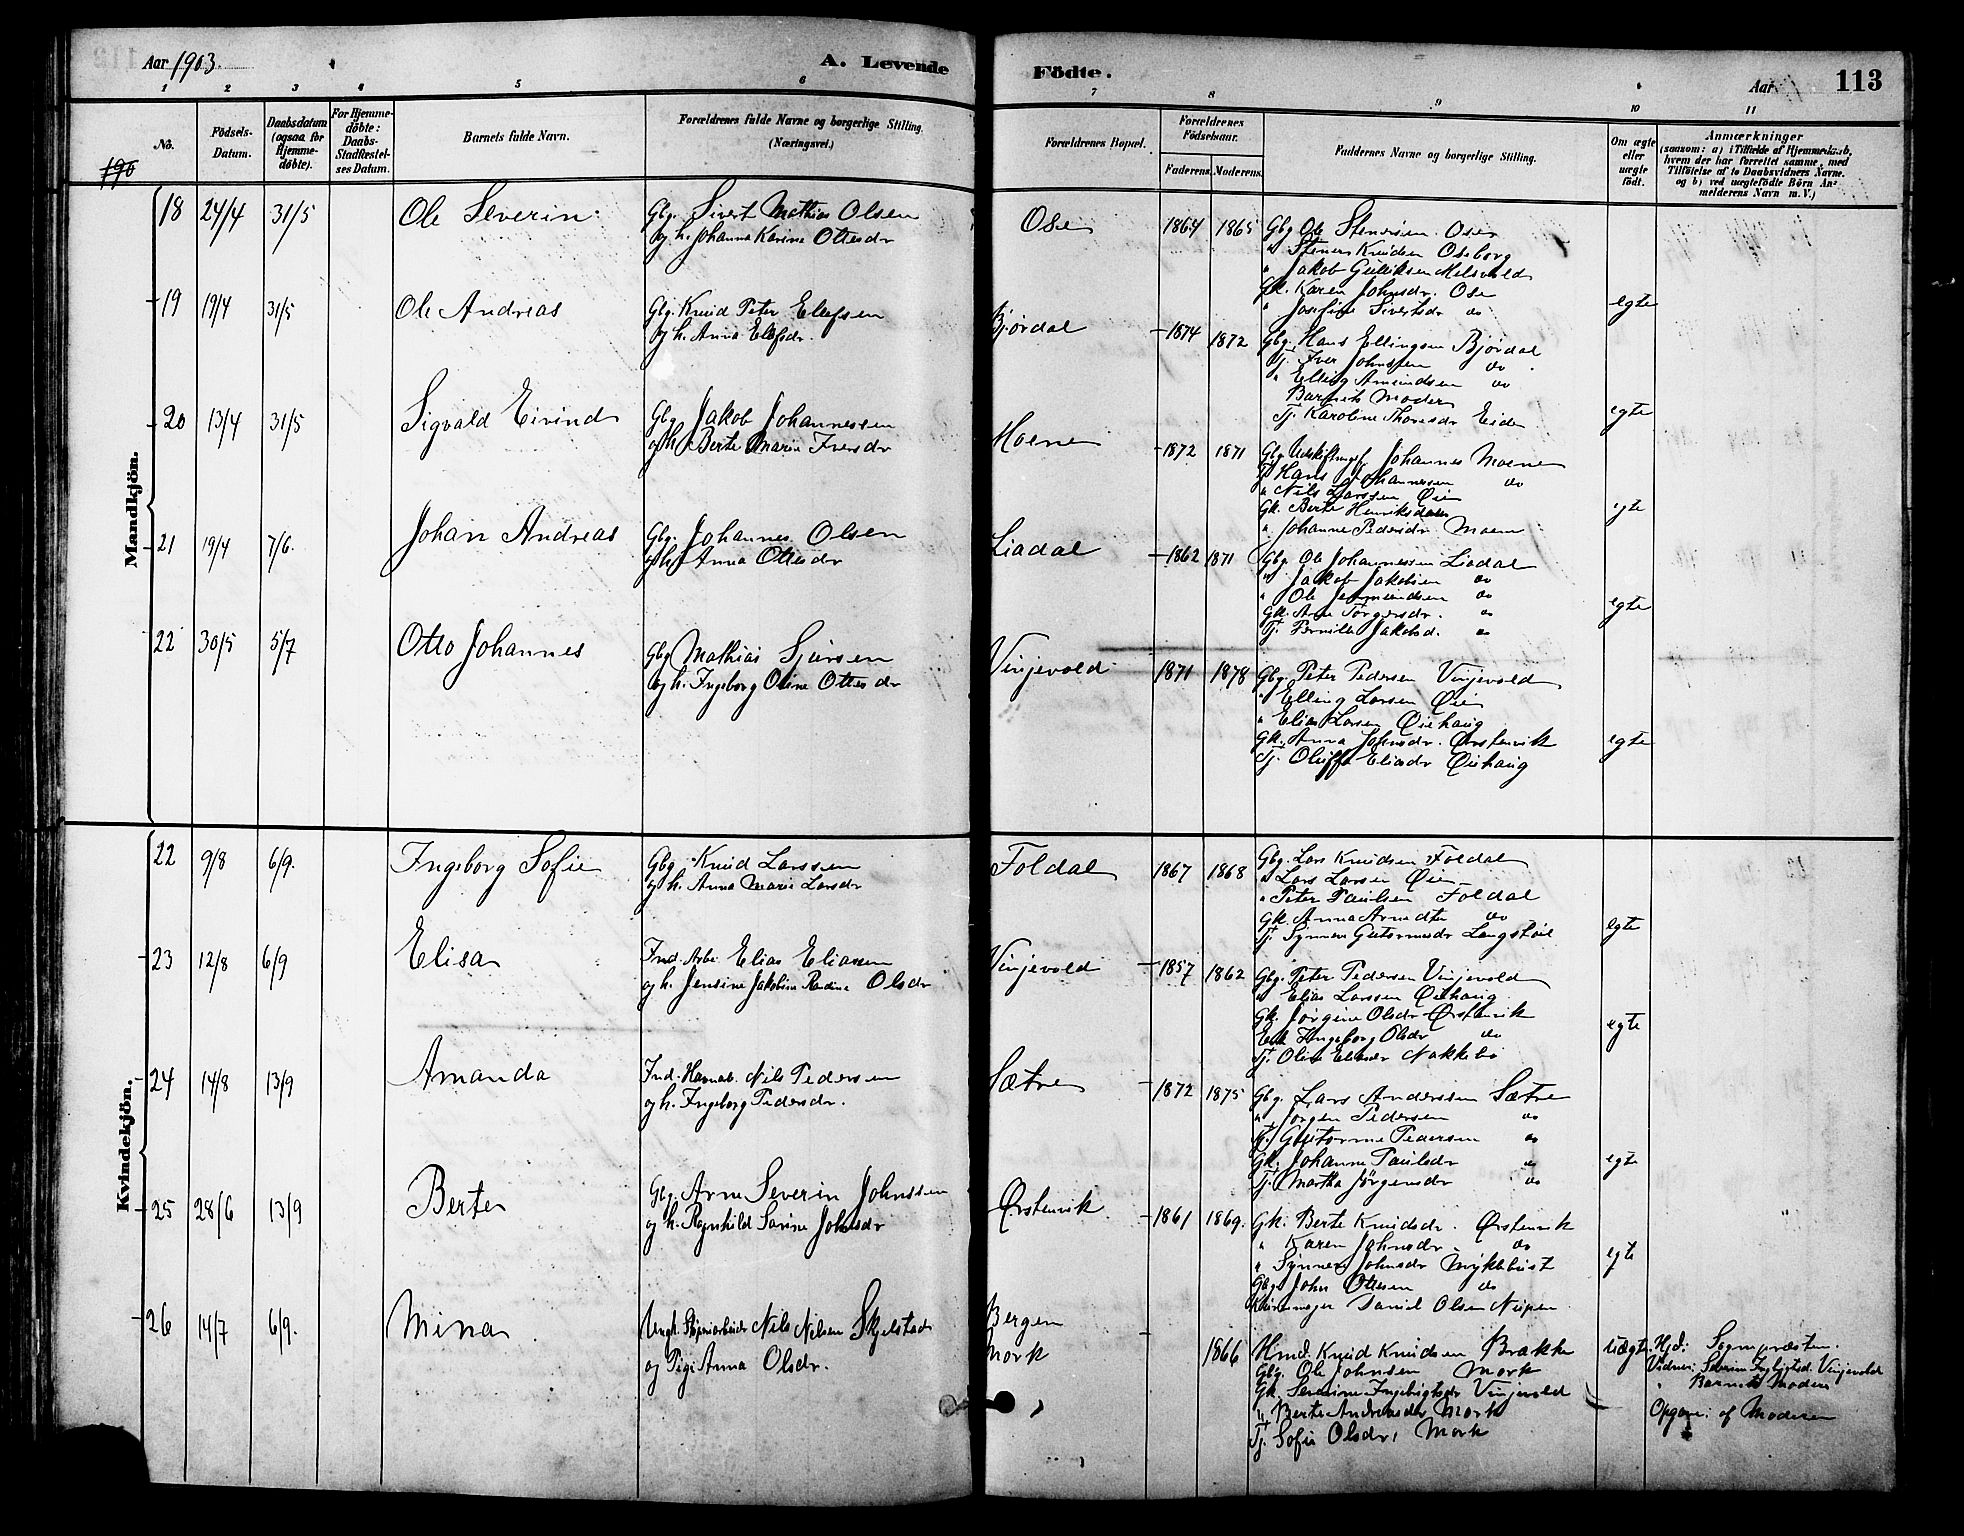 Aar 1903.
A. Levende
Födte.
Aar
113
1 2 3 4 5 6 7 8 9 10 11
No.
Födsels-Datum.
Daabsdatum (ogsaa for Hjemmedöbte).
For Hjemmedöbte: Daabs-Stadfæstelses Datum.
Barnets fulde Navn.
Forældrenes fulde Navne og borgerlige Stilling. (Næringsvei.)
Forældrenes Bopæl.
Forældrenes Födselsaar.
Faderens. Moderens.
Faddernes Navne og borgerlige Stilling.
Om ægte eller uægte födt.
Anmærkninger
(saasom: a) i Tilfælde af Hjemmedaab, hvem der har forrettet samme, med Tilföielse af to Daabsvidners Navne. og b) ved uægtefödte Börn Anmelderens Navn m. V.)
190
Mandkjön.
18 24/4 31/5 Ole Severin
Gbg. Sivert Mathias Olsen
og h. Johanna Karine Ottesdr
Ose 1864 1865
Gbg Ole Stenersen Ose
" Stener Knudsen Oseborg
" Jakob Guliksen Melsvold
Gk. Karen Johnsdr. Ose
" Josefine Sivertsdr do
egte
19 19/4 31/5 Ole Andreas
Gbg. Knud Peter Elefsen
og h. Anna Elefsdr.
Bjørdal 1874 1872
Gbg. Hans Ellingsen Bjørdal
Tj. Iver Johnsen do
" Elling Amundsen do
Barnets Moder
Tj. Karoline Thoresdr Eide
egte
20 13/4 31/5 Sigvald Eivind
Gbg. Jakob Johannessen
og h. Berte Marie Iversdr
Moene 1872 1871
Gbg Johannes Moene
Tj Hans Johannesen do
" Nils Larssen Øie
Gk. Berte Henriksdatter
" Johanne Pedersdr. Moene
egte
21 19/4 7/6. Johan Andreas
Gbg. Johannes Olsen
og h. Anna Ottesdr
Liadal 1862 1871
Gbg. Ole Johannessen Liadal
" Jakob Jakobsen do
" Ole do
Gk. Ane Torgersdr. do
Tj. Pernille Jakobsd. do
egte
22 30/5 5/7 Otto Johannes
Gbg Mathias Sjursen
og h. Ingeborg Oline Ottesdr
Vinjevold 1871 1878
Gbg. Peter Pedersen Vinjevold
" Elling Larsen Øie
" Elias Larsen Øiehaug
Gk. Anna Johnsdr. Ørstenvik
Tj. Oluffa Eliasdr Øiehaug
egte
Kvindekjön.
22 9/8 6/9. Ingeborg Sofie
Gbg. Knud Larssen
og h. Anna Marie Larsdr
Foldal 1867 1868
Gbg. Lars Knudsen Foldal
" Lars Larsen Øie
" Peter Paulsen Foldal
Gk. Anna Arnedtr do
Tj. Synnøve Guttormsdr Langstøil
egte
23 12/8 6/9 Elisa
Ind. Arb. Elias Eliassen
og h. Jensine Jakobine Rasdine Olsdr
Vinjevold 1857 1862
Gbg. Peter Pedersen Vinjevold
" Elias Larssen Øiehaug
Gk. Jørgine Olsdr Ørstenvik
Enk Ingeborg Olsdr do
Tj. Oline Eliasdr Nakkebø
egte
24 14/8 13/9 Amanda
Ind. Nils Pedersen
og h. Ingeborg Pedersdr.
Sætre 1872 1875
Gbg. Lars Anderssen Sætre
" Jørgen Pedersen do
Tj. Guttorme Pedersen do
Gk. Johanne Paulsdr do
Tj. Martha Jørgensdr do
egte
25 28/6 13/9 Berte
Gbg. Arne Severin Johnssen
og h. Ragnhild Sarine Johnsdr
Ørstenvik 1861 1869.
Gk. Berte Knudsdr. Ørstenvik
" Karen Johnsdr do
" Synnøve Johnsdr Myklebust
Gbg. John Ottesen do
Kirkesanger Daniel Olsen Neipen
egte
26 14/7 6/9. Mina
Ungk. Skipsarbeider Nils Nilsen Skjelstad
og Pige Anna Olsdr.
Bergen
Mork 1866
Hmd. Knud Knudsen Brække
Gbg. Ole Johnsen Mork
Gk. Severine Ingebrigtsdr Vinjevold
" Berte Andreasdr Mork
Tj. Sofie Olsdr, Mork
uægte.
Hjd: Sognepræsten.
Vidner: Severine Ingbrigtsd. Vinjevold
Barnets Moder
Opgave: af Moderen